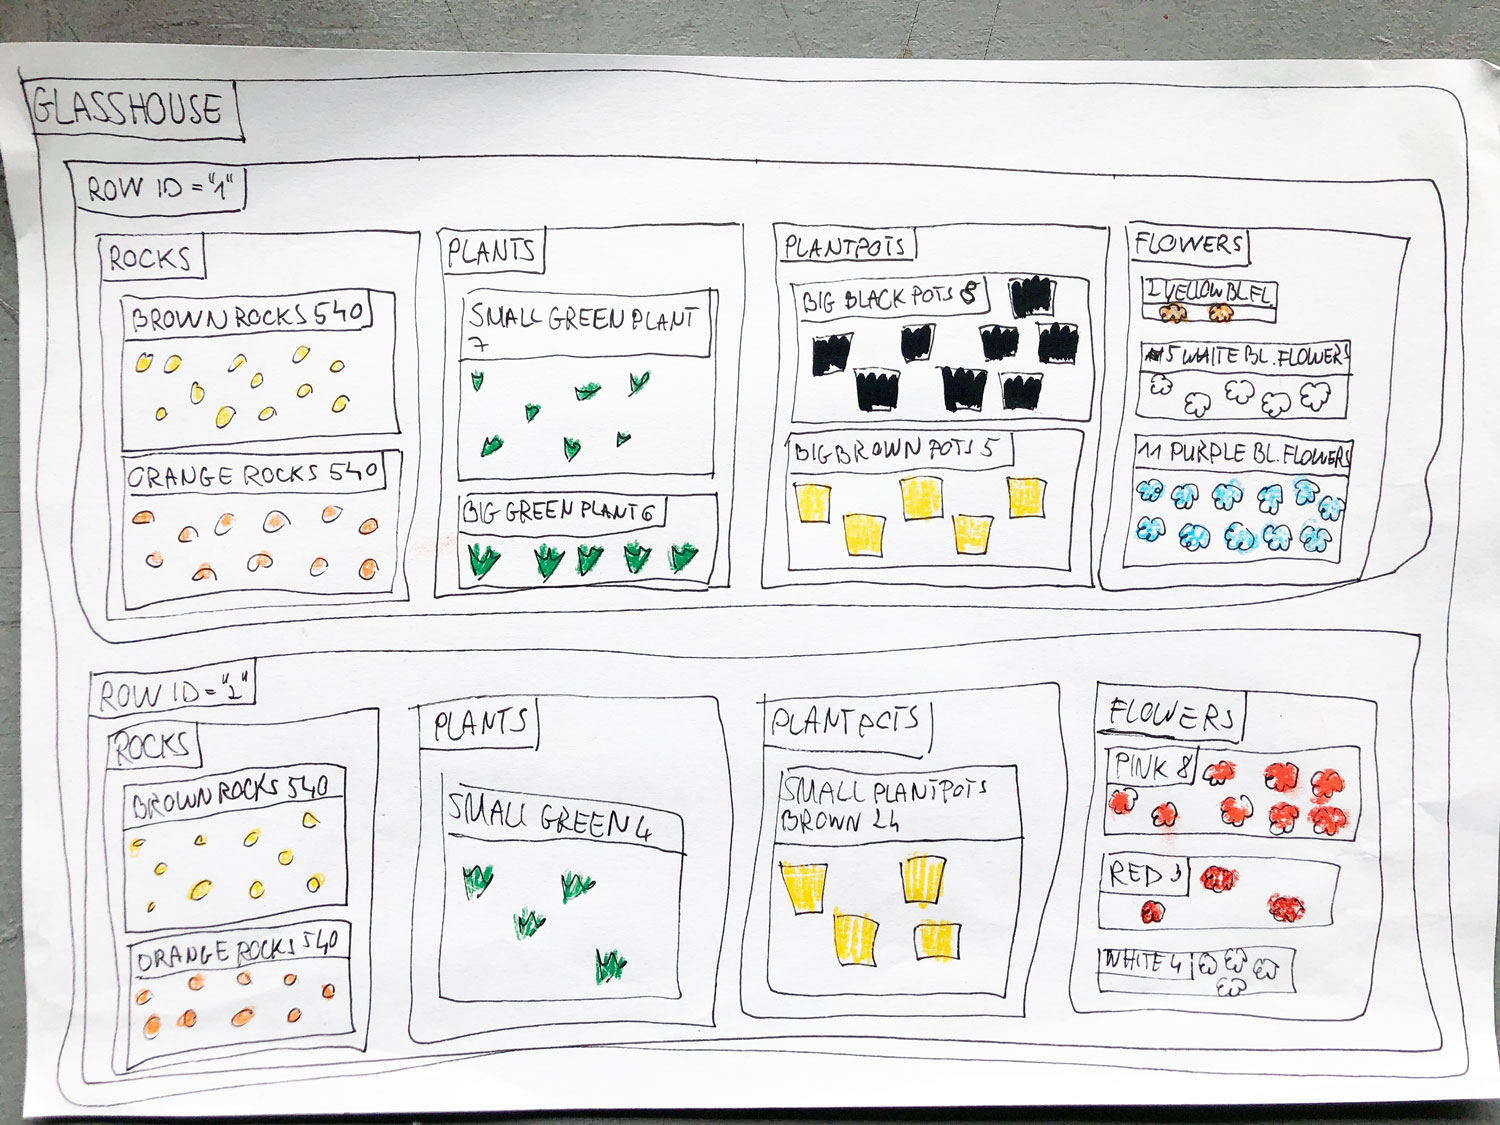 GLASSHOUSE
ROW ID = "1"
ROCKS
BROWN ROCKS 540
ORANGE ROCKS 540
PLANTS
SMALL GREEN PLANT
7
BIG GREEN PLANT 6
PLANTPOTS
BIG BLACK POTS 8
BIG BROWN POTS 5
FLOWERS
2 YELLOW BL FL
5 WHITE BL. FLOWERS
11 PURPLE BL. FLOWERS
ROW ID = "2"
ROCKS
BROWN ROCKS 540
ORANGE ROCKS 540
PLANTS
SMALL GREEN 4
PLANTPOTS
SMALL PLANTPOTS
BROWN 24
FLOWERS
PINK 8
RED 3
WHITE 4